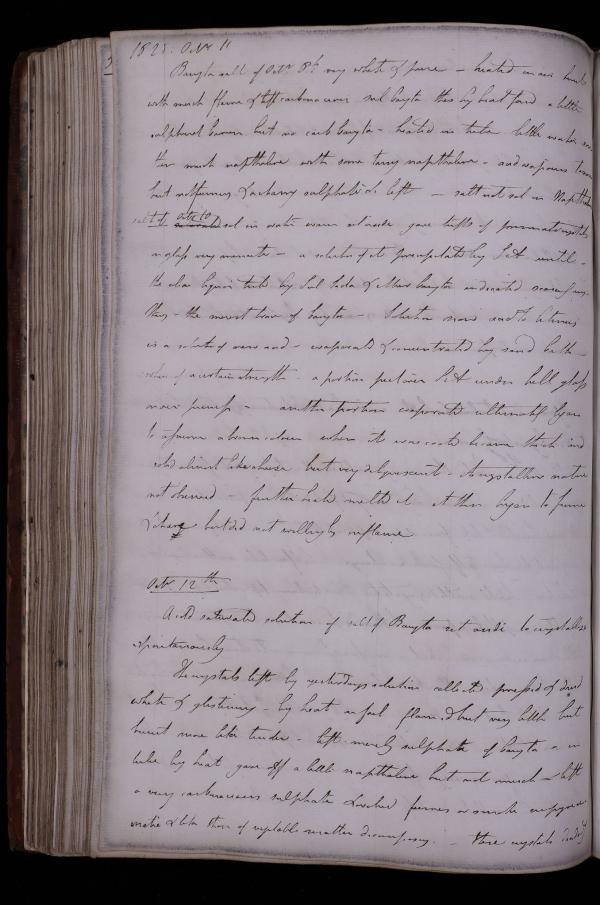 1825. Octr. 11
Baryta salt of Octr. 8th very white & pure - heated in air burnt
with much flame & left carbonaceous sul baryta this by heat gave a little
sulphurd baryta but no carb baryta - heated in tube little water
then much napthaline with some tarry napthaline - and vapours
but not fuming & charry sulphate left - salt not sol in Napthaline
salt of Octr 10 sol in water warm set aside gave tufts of prismatic crystals
in glass very minute - a solution of it precipitated by S A until
the clear liquor tested by Sul Soda & Mur baryta indicated scarcely any
thing - the merest trace of baryta - Solution now acid to litmus
is a solution of new acid - evaporated & concentrated by sand bath
when of a certain strength a portion put over S A under bell glass
over pump - another portion evaporated ultimately began
to assume a brown colour when it was cooled became thick and
solid almost like cheese but very deliquescent - a crystalline nature
not observed - further heated melted it then began to fume
& char but did not willingly inflame
Octr. 12th
A cold saturated solution of salt of Baryta set aside to crystallize
spontaneously
The crystals left by yesterdays solution collected pressed & dried
white & glistening - by heat in foil flamed but very little but
burnt more like tinder - left merely sulphate of baryta - in
tube by heat gave off a little napthaline but not much - left
a very carbonaceous sulphate &
matic & like those of vegetable matter decomposing. - These crystals